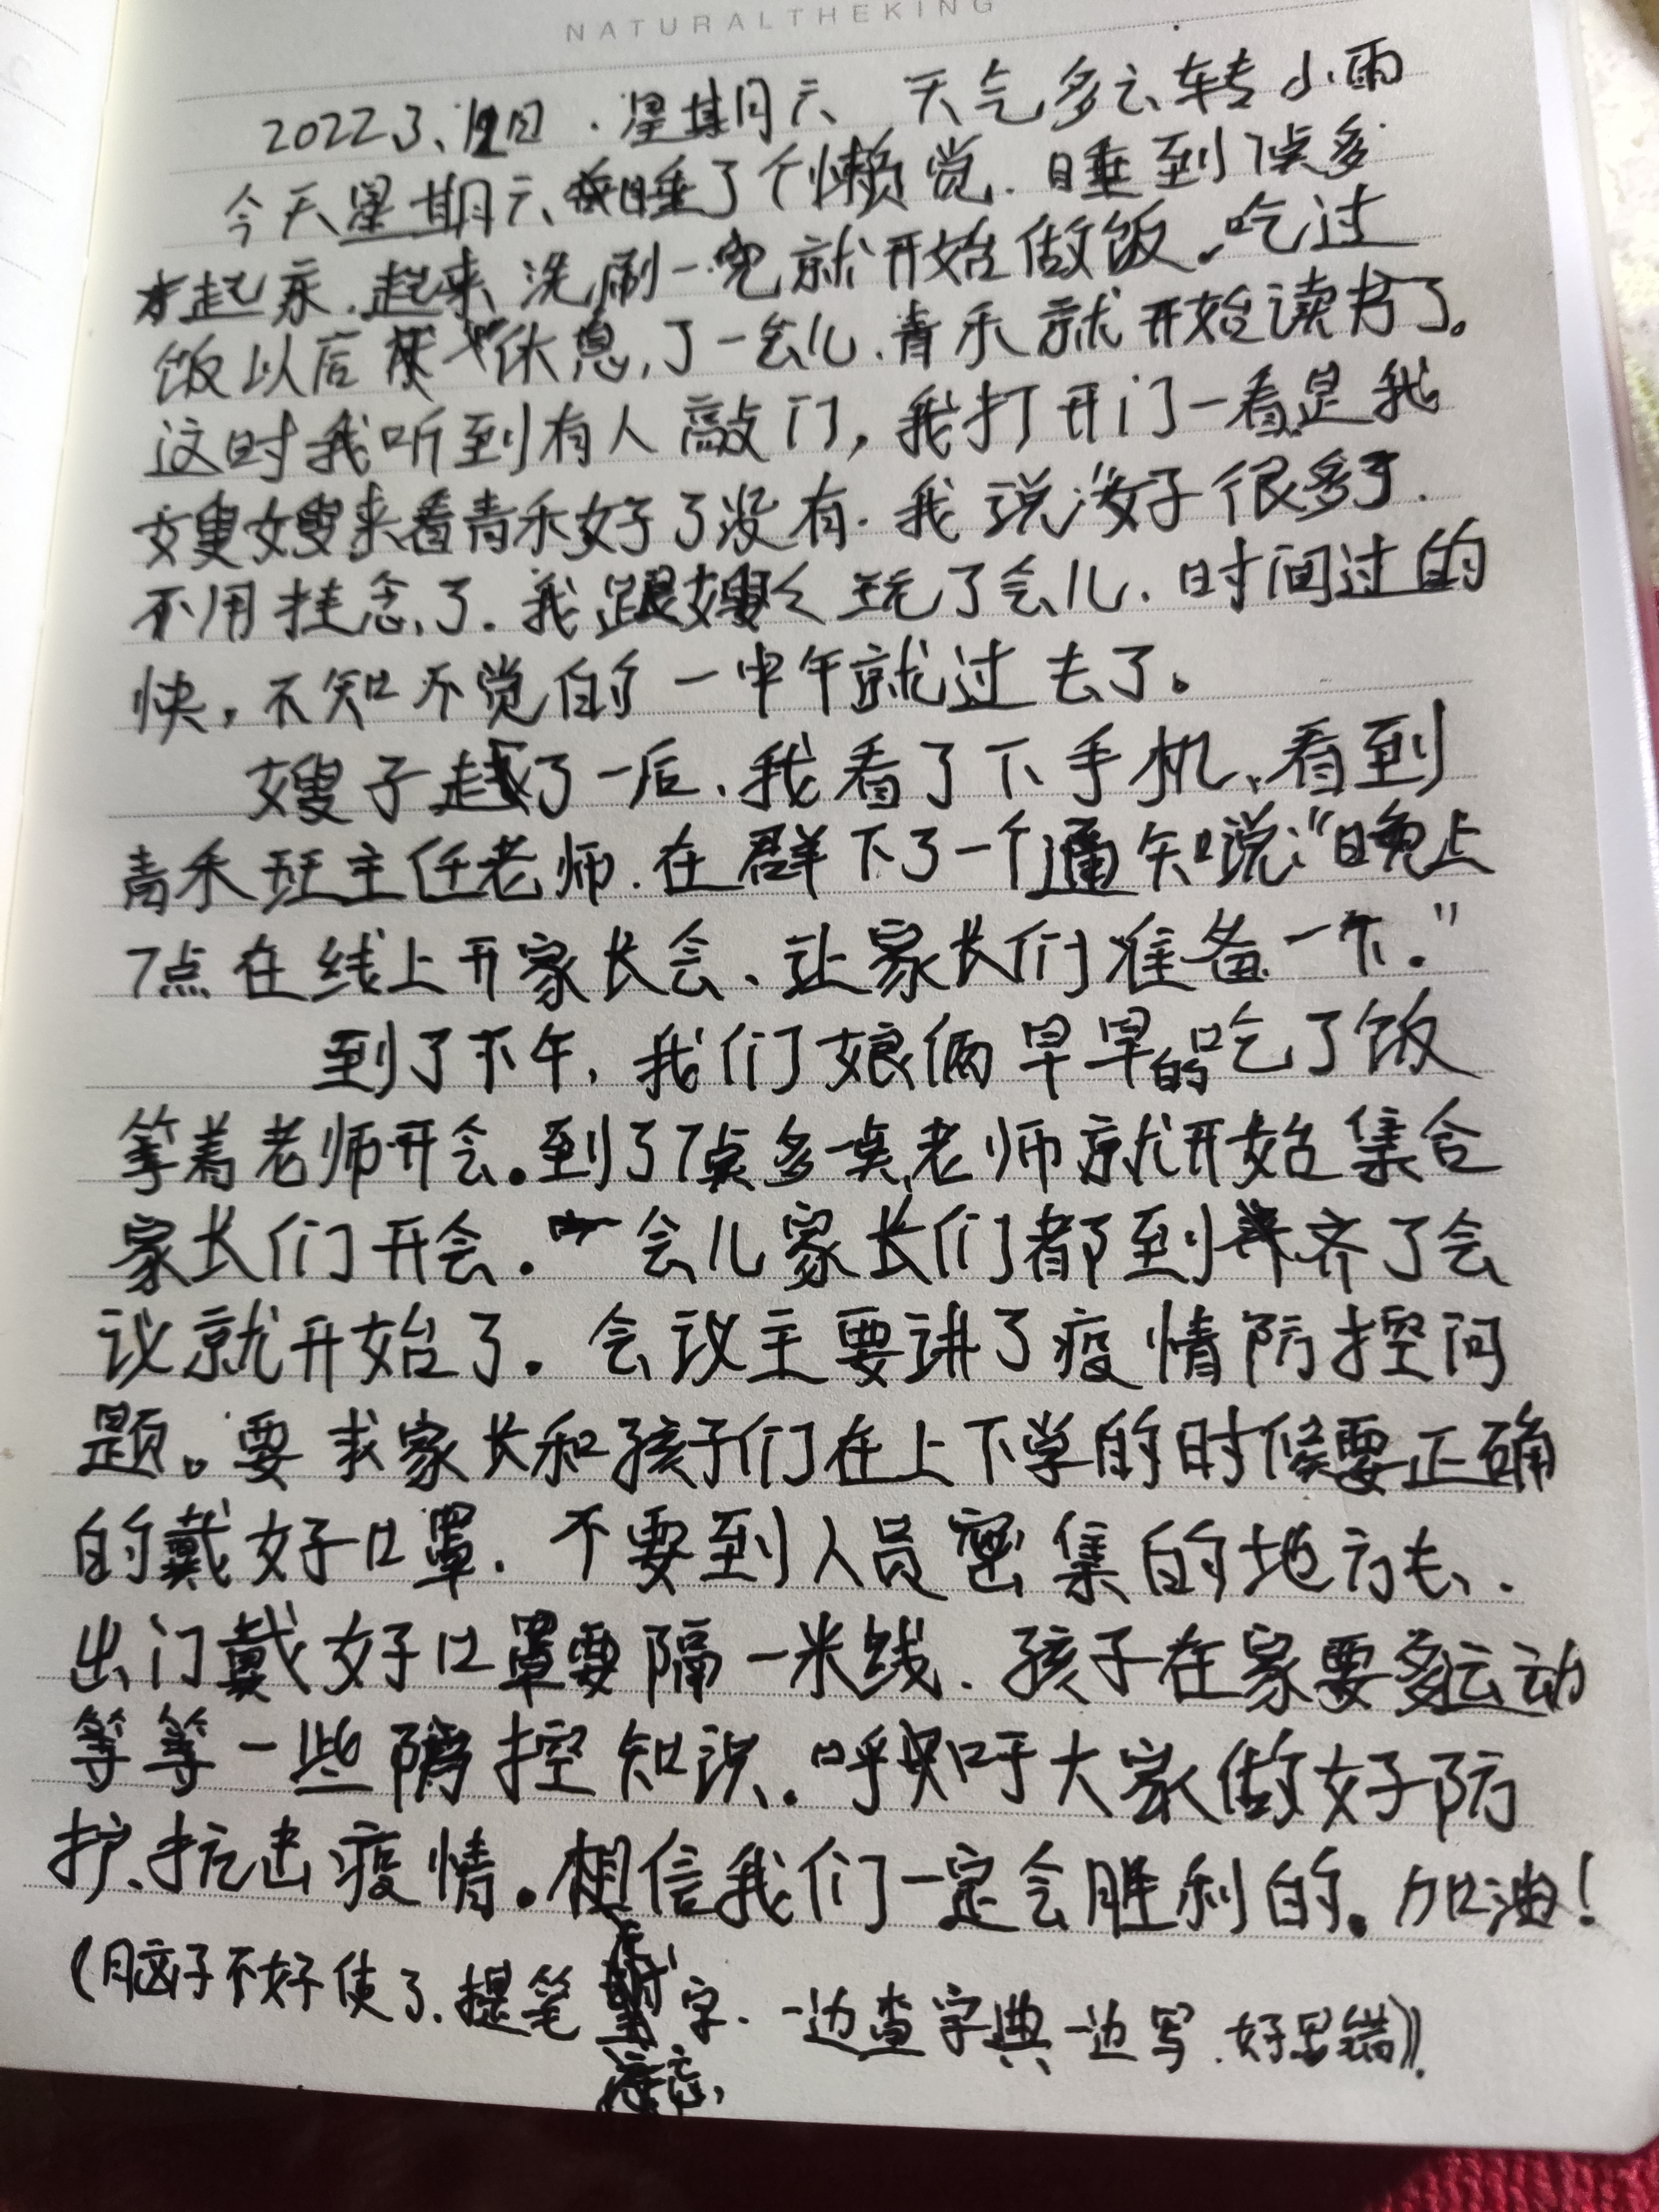 NATURALTHEKING
2022 3、12日、星期六 天气多云转小雨
今天星期六我睡了个懒觉.睡到7点多
才起床.起来洗刷一完就开始做饭.吃过
饭以后休息了一会儿.青禾就开始读书了。
这时我听到有人敲门,我打开门一看是我
嫂嫂来看青禾好了没有.我说:“好很多了.
不用挂念了.我跟嫂々玩了会儿.时间过的
快,不知不觉的一中午就过去了。
嫂子走了一后、我看了下手机、看到
青禾班主任老师.在群下了一个通知说:“晚上
7点在线上开家长会、让家长们准备一下.”
到了下午,我们娘俩早早的吃了饭
等着老师开会。到了7点多一点老师就开始集合
家长们开会.一会儿家长们都到齐了会
议就开始了。会议主要讲了疫情防控问
题。要求家长和孩子们在上下学的时候要正确
的戴好口罩.不要到人员密集的地方去、.
出门戴好口罩要隔一米线.孩子在家要多运动
等等一些防控知识.呼吁大家做好防
护、抗击疫情。相信我们一定会胜利的。加油!
(脑子不好使了.提笔忘字.一边查字典一边写.好